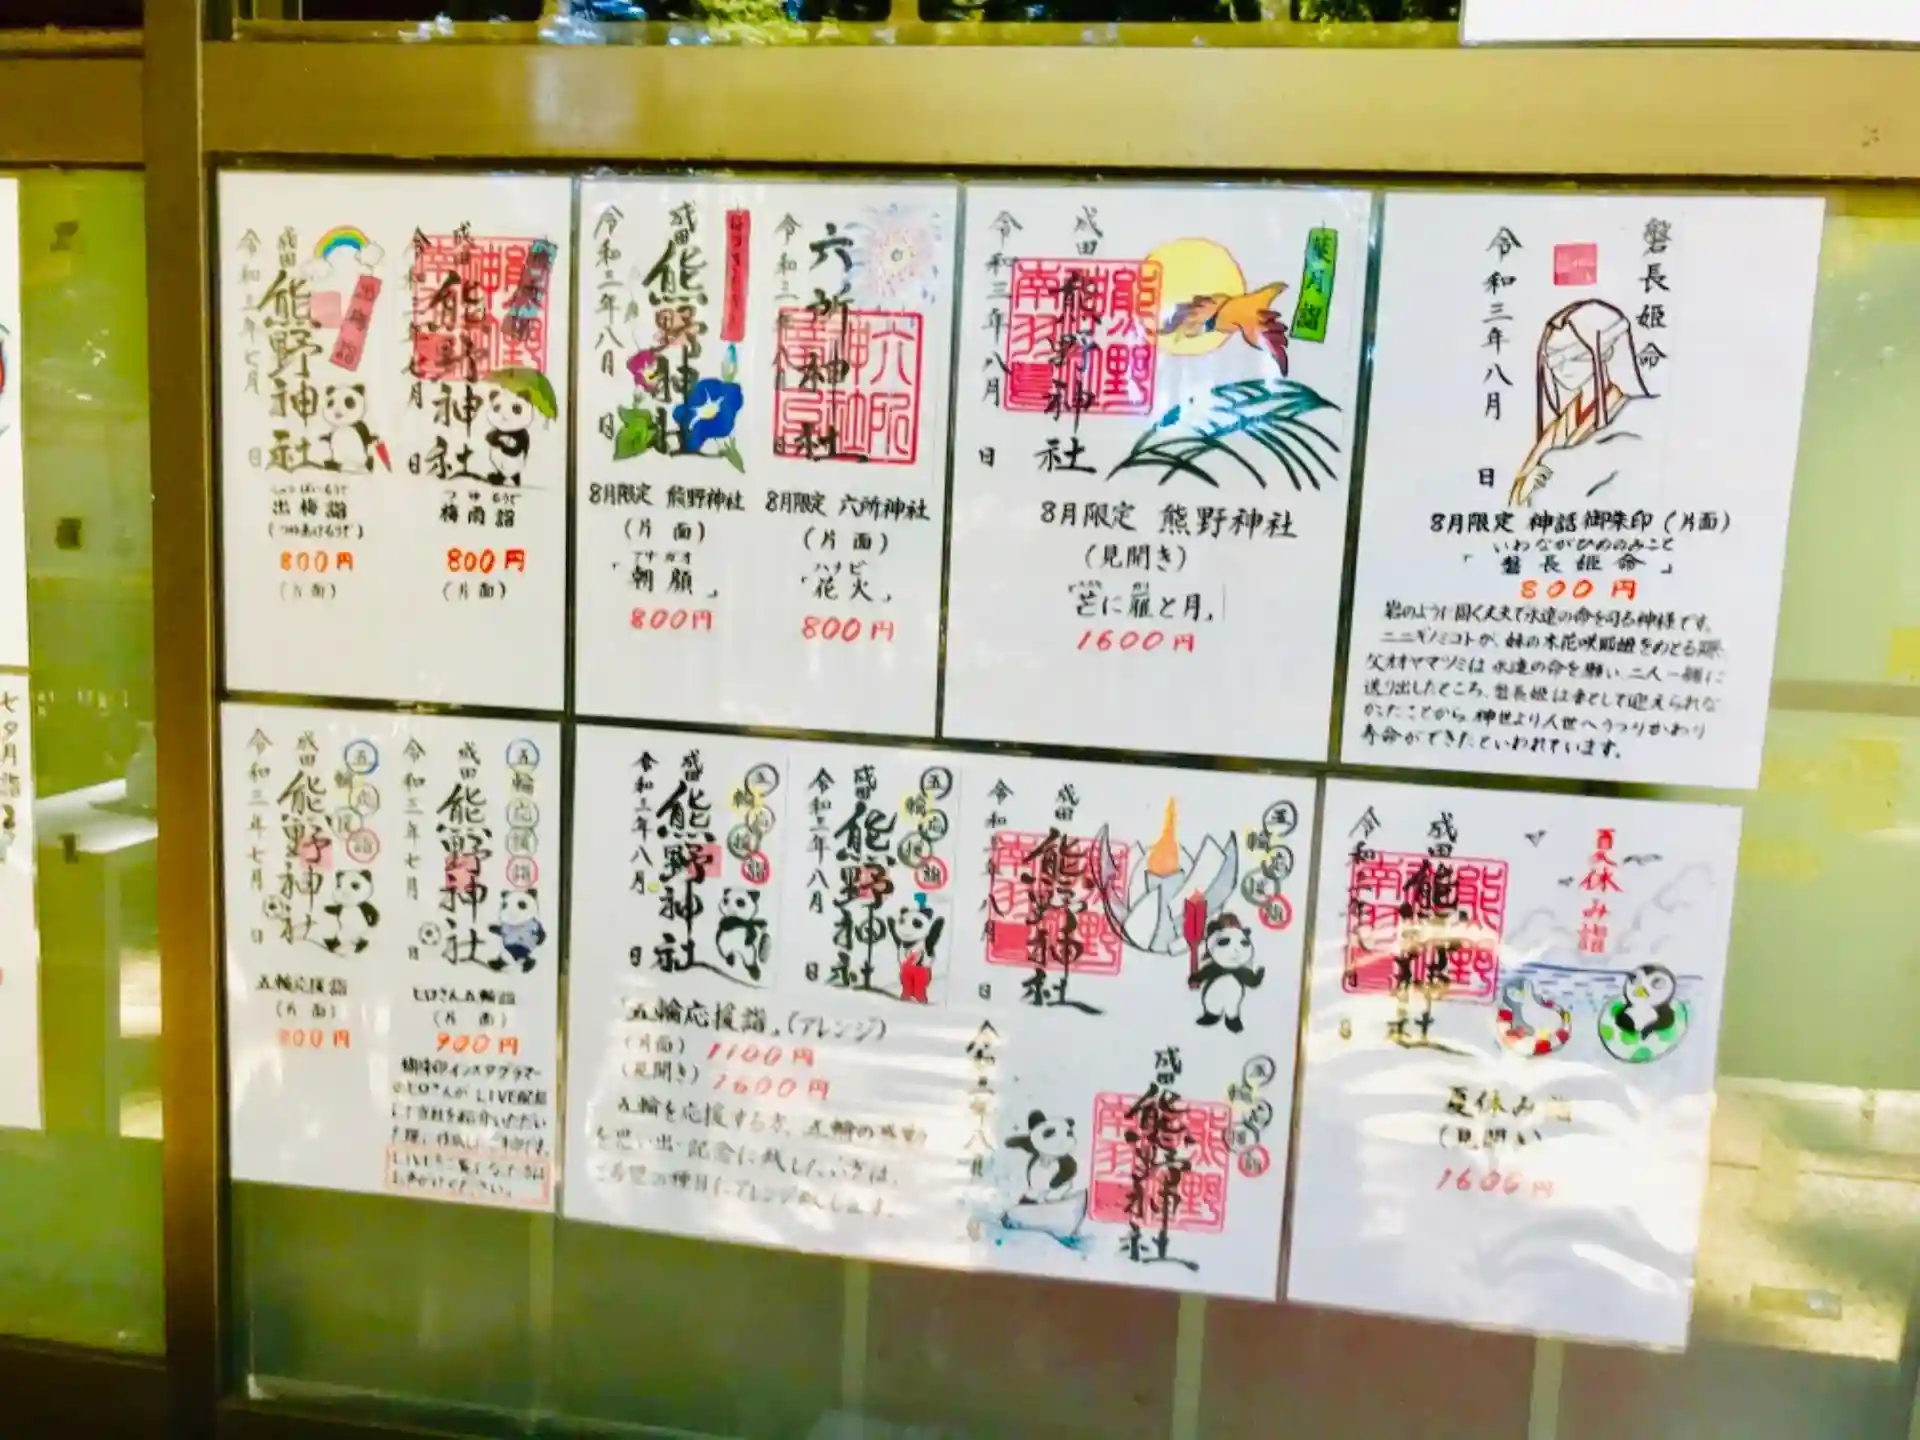 令和三年七月 日
成田
熊野神社
出梅詣
しゅつばいもうで
出梅詣
(つゆあけもうで)
800円
(片面)
成田
熊野神社
つゆもうで
梅雨詣
800円
(片面)
令和三年八月 日
成田
熊野神社
8月限定 熊野神社
(片面)
アサガオ
「朝顔」
800円
六所神社
8月限定 六所神社
(片面)
ハナビ
「花火」
800円
令和三年八月 日
成田
熊野神社
葉月詣
8月限定 熊野神社
(見開き)
「芒に雁と月」
1600円
磐長姫命
令和三年八月 日
8月限定 神話御朱印(片面)
いわながひめのみこと
「磐長姫命」
800円
岩のように固く丈夫で永遠の命を司る神様です。
ニニギノミコトが、妹の木花咲耶姫をめとる際、
父オオヤマツミは永遠の命を願い、二人一緒に
送り出したところ、磐長姫は妻として迎えられな
かったことから、神世より人世へうつりかわり
寿命ができたといわれています。
令和三年七月 日
成田
熊野神社
五輪応援詣
五輪応援詣
(片面)
800円
令和三年七月 日
成田
熊野神社
五輪応援詣
ヒロさん五輪詣
(片面)
900円
御朱印インスタグラマー
のヒロさんが LIVE配信
にて当社を紹介いただい
令和三年八月 日
成田
熊野神社
五輪応援詣
令和三年八月 日
成田
熊野神社
五輪応援詣
「五輪応援詣」(アレンジ)
(片面) 1100円
(見開き) 1600円
五輪を応援する方、五輪の感動
を思い出・記念に残したい方は、
ご希望の種目にアレンジ致します。
令和三年八月 日
成田
熊野神社
五輪応援詣
令和三年八月 日
成田
熊野神社
五輪応援詣
成田
熊野神社
夏休み詣
夏休み詣
(見開き)
1600円